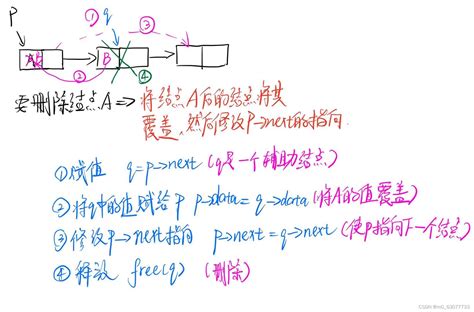 ① q
P ③
A B
②
④
要删除结点A => 将结点A后的结点将其
覆盖,然后修改P→next的指向.
① 赋值 q=p→next (q是一个辅助结点)
② 将q中的值赋给P p→data=q→data (将A的值覆盖)
③ 修改P→next指向 p→next=q→next (使P指向下一个结点)
④ 释放 free(q) (删除)